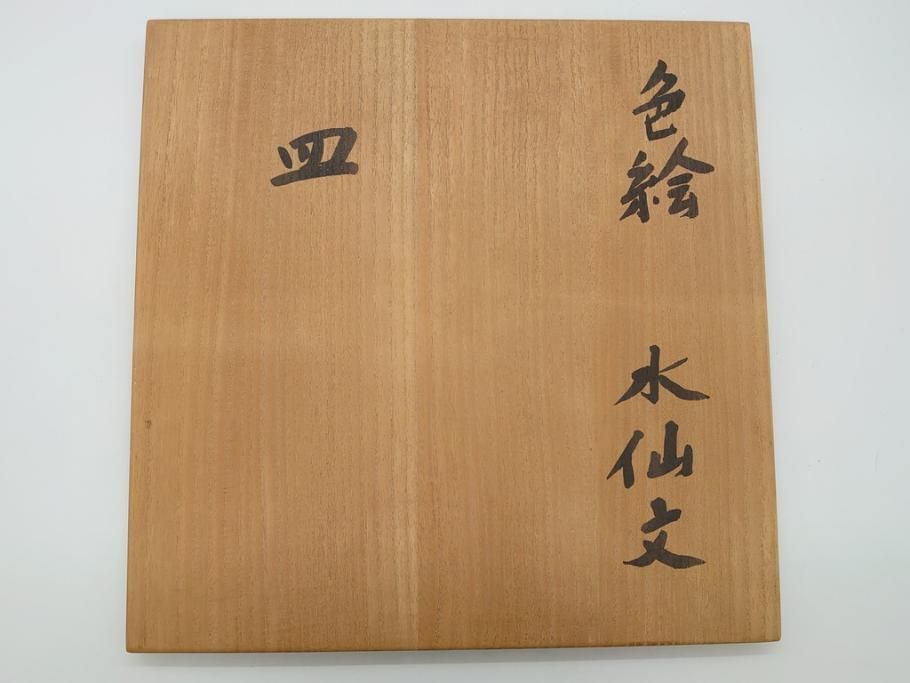 色絵 水仙文
皿